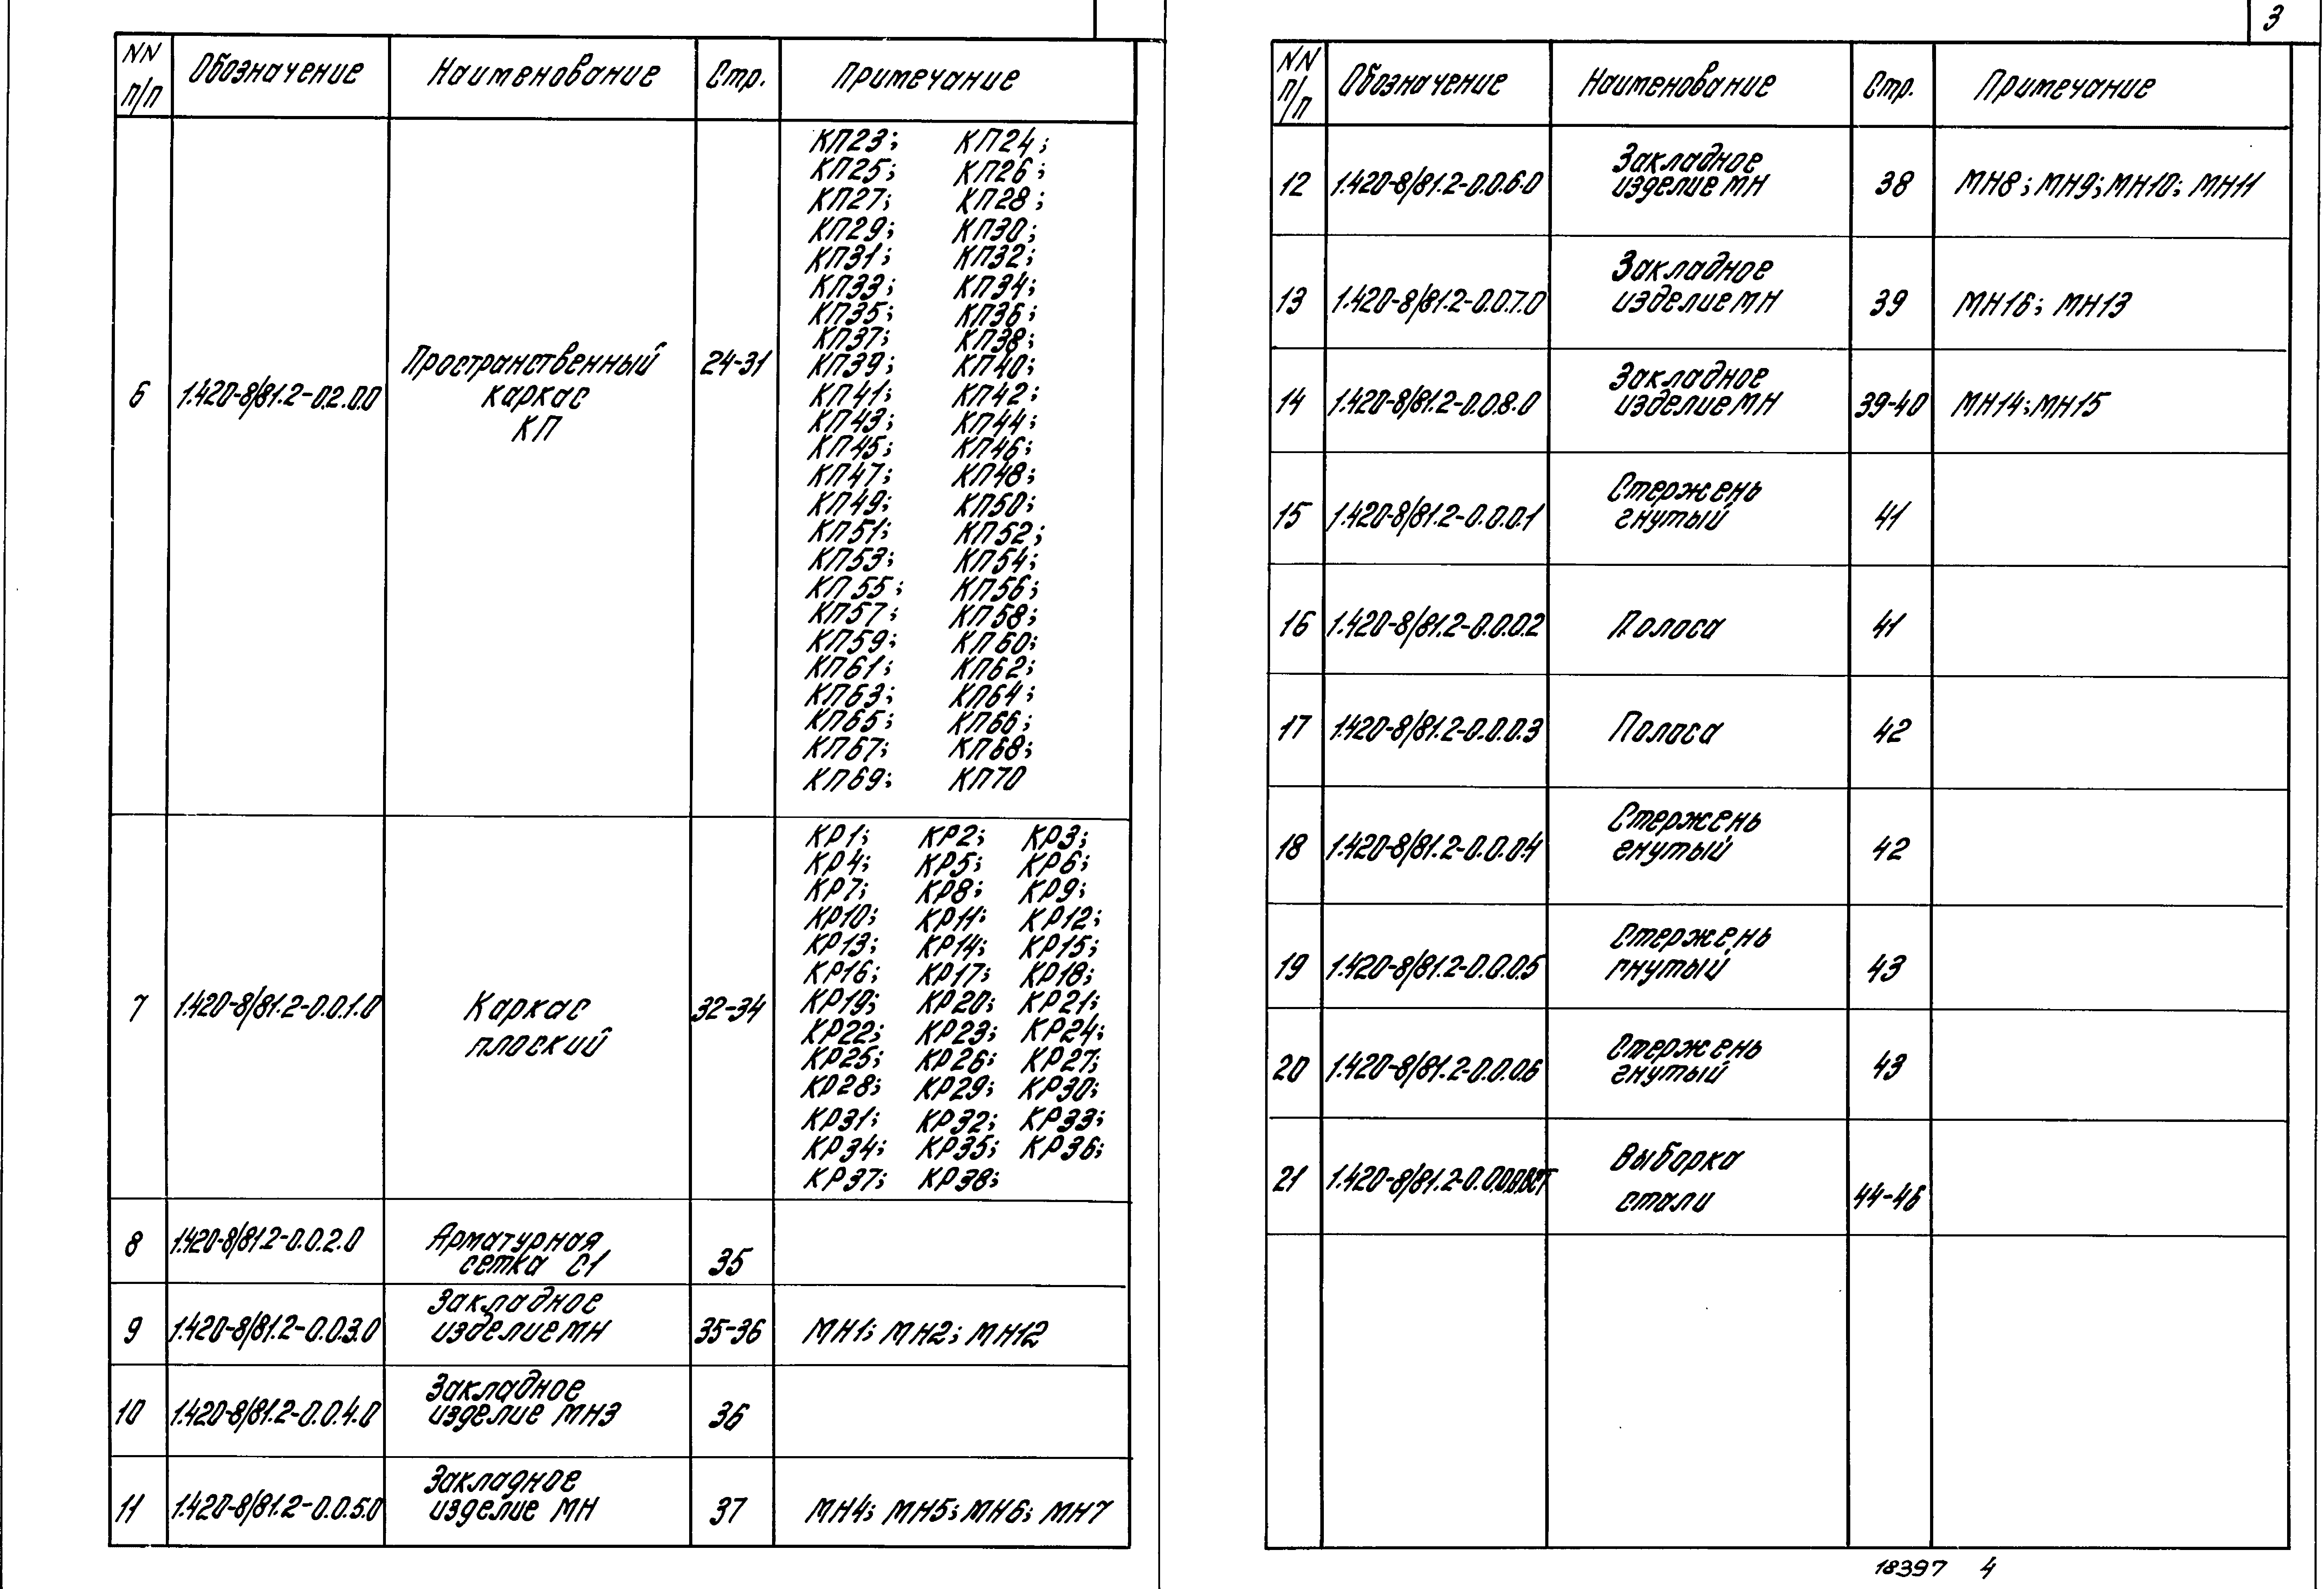 3
NN п/п Обозначение Наименование Стр. Примечание
КП23; КП24;
КП25; КП26;
КП27; КП28;
КП29; КП30;
КП31; КП32;
КП33; КП34;
КП35; КП36;
КП37; КП38;
6 1.420-8/81.2-0.2.0.0 Пространственный каркас КП 24-31 КП39; КП40;
КП41; КП42;
КП43; КП44;
КП45; КП46;
КП47; КП48;
КП49; КП50;
КП51; КП52;
КП53; КП54;
КП55; КП56;
КП57; КП58;
КП59; КП60;
КП61; КП62;
КП63; КП64;
КП65; КП66;
КП67; КП68;
КП69; КП70
КР1; КР2; КР3;
КР4; КР5; КР6;
КР7; КР8; КР9;
КР10; КР11; КР12;
КР13; КР14; КР15;
КР16; КР17; КР18;
7 1.420-8/81.2-0.0.1.0 Каркас плоский 32-34 КР19; КР20; КР21;
КР22; КР23; КР24;
КР25; КР26; КР27;
КР28; КР29; КР30;
КР31; КР32; КР33;
КР34; КР35; КР36;
КР37; КР38;
8 1.420-8/81.2-0.0.2.0 Арматурная сетка С1 35
9 1.420-8/81.2-0.0.3.0 Закладное изделие МН 35-36 МН1; МН2; МН12
10 1.420-8/81.2-0.0.4.0 Закладное изделие МН3 36
11 1.420-8/81.2-0.0.5.0 Закладное изделие МН 37 МН4; МН5; МН6; МН7
NN п/п Обозначение Наименование Стр. Примечание
12 1.420-8/81.2-0.0.6.0 Закладное изделие МН 38 МН8; МН9; МН10; МН11
13 1.420-8/81.2-0.0.7.0 Закладное изделие МН 39 МН16; МН13
14 1.420-8/81.2-0.0.8.0 Закладное изделие МН 39-40 МН14; МН15
15 1.420-8/81.2-0.0.0.1 Стержень гнутый 41
16 1.420-8/81.2-0.0.0.2 Полоса 41
17 1.420-8/81.2-0.0.0.3 Полоса 42
18 1.420-8/81.2-0.0.0.4 Стержень гнутый 42
19 1.420-8/81.2-0.0.0.5 Стержень гнутый 43
20 1.420-8/81.2-0.0.0.6 Стержень гнутый 43
21 Выборка стали 44-46
18397 4